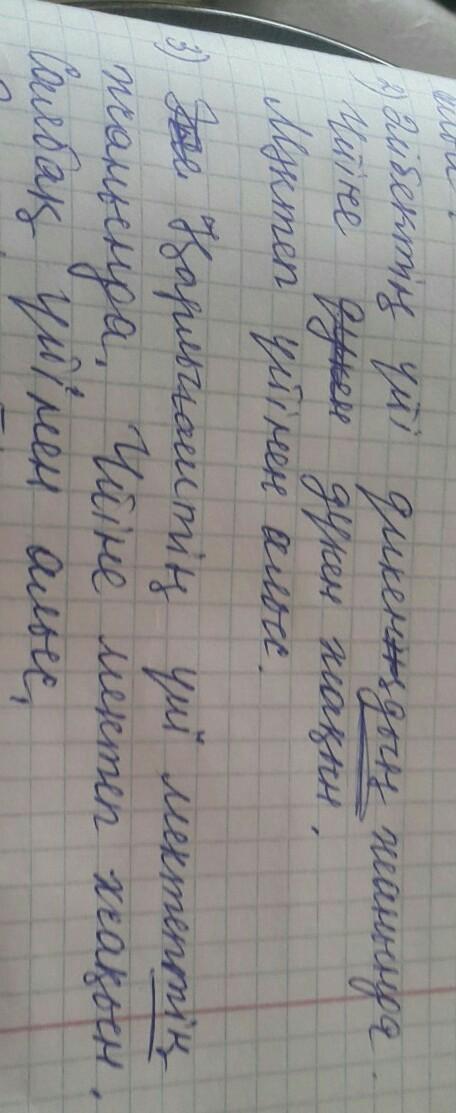 2) Әлібектің үйі дүкеннздың жанында.
Үйіне дүкен дүкен жақын.
Мектеп үйінен алыс.
3) Қарлығаштің үйі мектептің
жанында. Үйіне мектеп жақын.
Саябақ үйінен алыс,